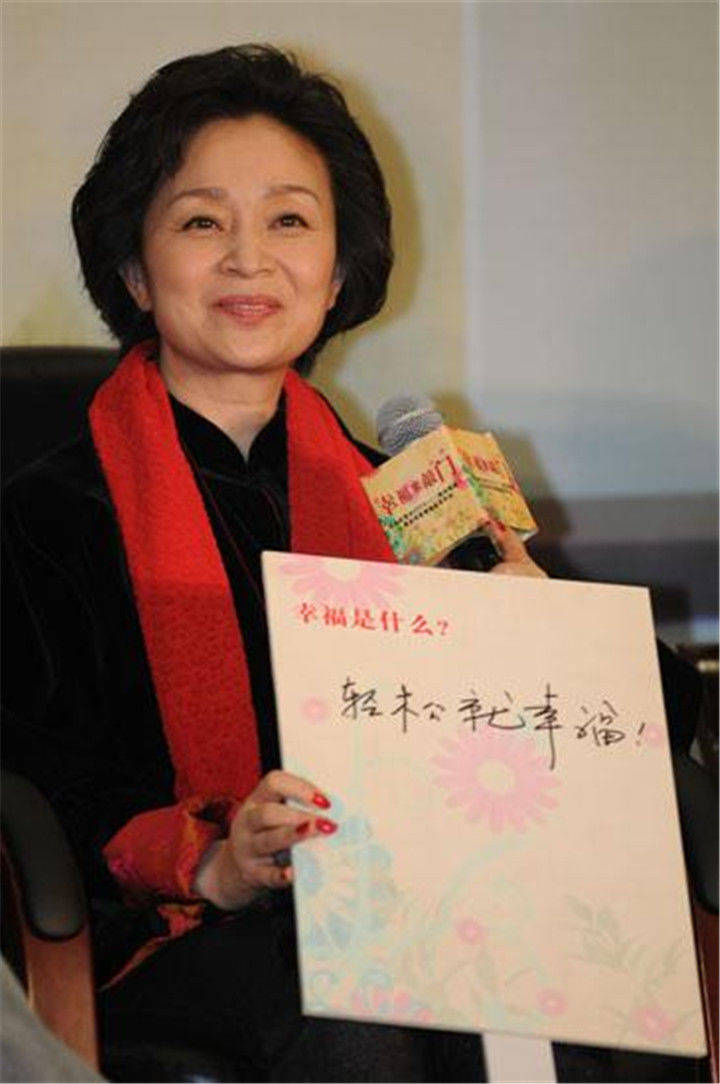 幸福来敲门
幸福是什么?
轻松就幸福!